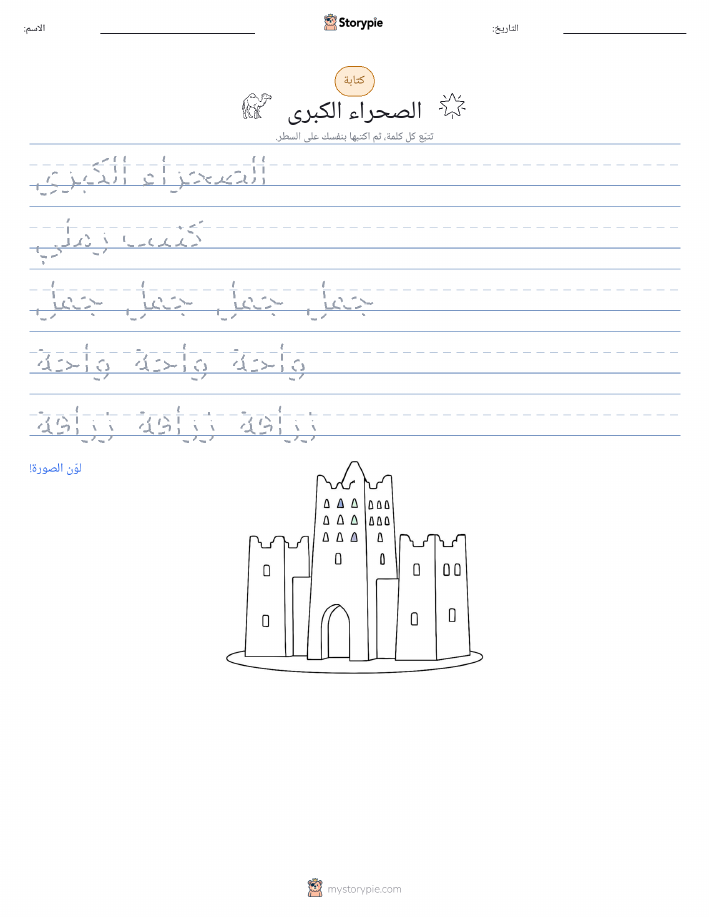 الاسم:
Storypie
التاريخ:
كتابة
الصحراء الكبرى
تتبّع كل كلمة، ثم اكتبها بنفسك على السطر.
الصحراء الكبرى
كثيب رملي
جمل جمل جمل جمل
واحة واحة واحة
زرافة زرافة زرافة
لوّن الصورة!
mystorypie.com